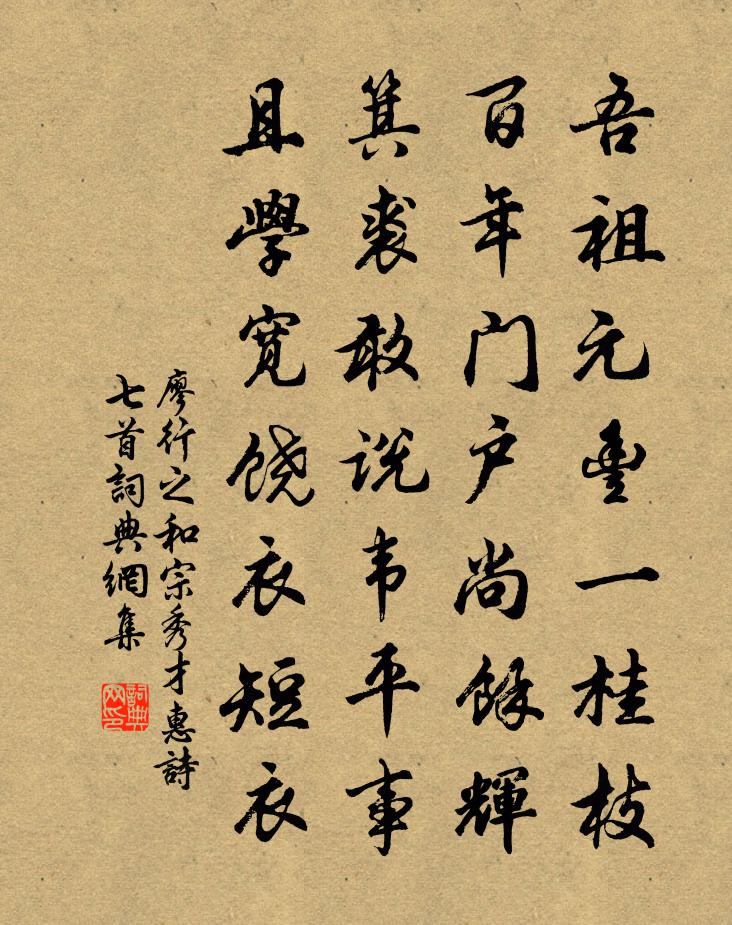 吾祖元豐一桂枝
百年门户尚餘輝
箕裘敢说韦平事
且學寬饶衣短衣
廖行之和宗秀才惠詩
七首詞典網集
詞典
网印